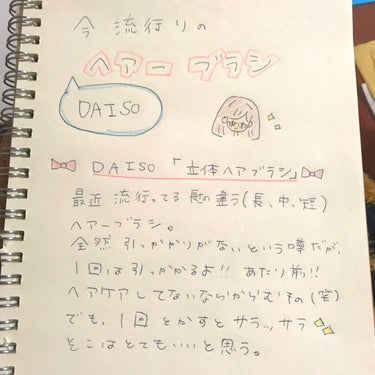 今 流行りの
ヘアー ブラシ
DAISO
DAISO 「立体ヘアブラシ」
最近 流行ってる 長さの違う(長、中、短)
ヘアーブラシ。
全然 引っかかりがないという噂だが、
1回は引っかかるよ!! あたり前!!
ヘアケアしてないならからむもの(笑)
でも、1回 とかすとサラッサラ
そこはとてもいいと思う。